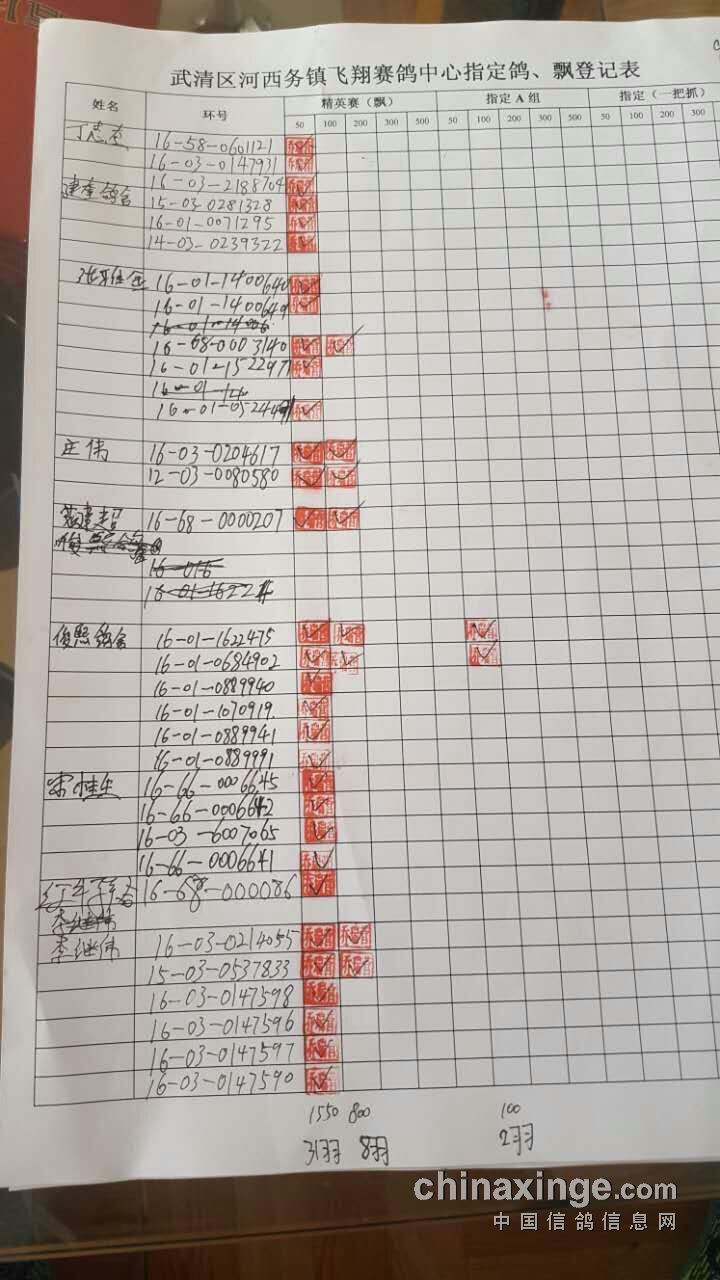 武清区河西务镇飞翔赛鸽中心指定鸽、飘登记表
姓名 环号 精英赛（飘） 指定 A 组 指定（一把抓）
50 100 200 300 500 50 100 200 300 500 50 100 200 300
16-58-0601121
16-03-0147931
16-03-2188704
15-03-0281328
16-01-0071295
14-03-0239322
16-01-1400640
16-01-1400649
16-01-14006
16-68-0003140
16-01-1522971
16-01-14
16-01-05244
庄伟 16-03-0204617
12-03-0080580
16-68-0000207
16-016
16-01-16222
俊熙鸽舍 16-01-1622475
16-01-0684902
16-01-0889940
16-01-1070919
16-01-0889941
16-01-0889991
宋桂生 16-66-0006645
16-66-0006642
16-03-6007065
16-66-0006641
16-68-000086
李继伟
李继伟 16-03-0214055
15-03-0537833
16-03-0147598
16-03-0147596
16-03-0147597
16-03-0147590
1550 800 100
31羽 8羽 2羽
chinaxinge.com
中国信鸽信息网